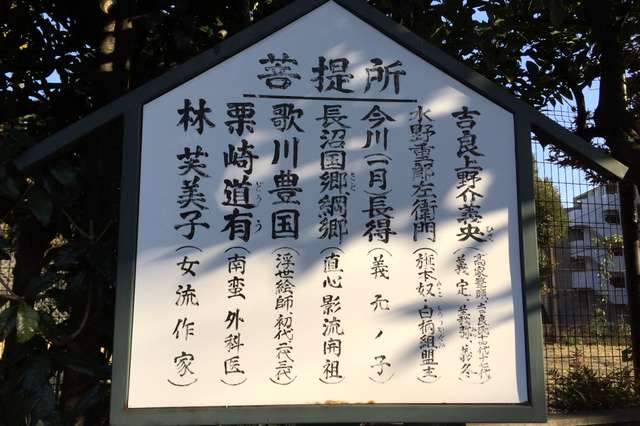 菩提所
吉良上野介義央
高家筆頭・吉良
義定・
水野重郎左衛門
(旗本奴・白柄組盟主)
今川(一月)長得
(義元ノ子)
長沼国郷綱郷
(直心影流開祖)
歌川豊国
(浮世絵師初代二代三代)
栗崎道有
どうう
(南蛮外科医)
林芙美子
(女流作家)